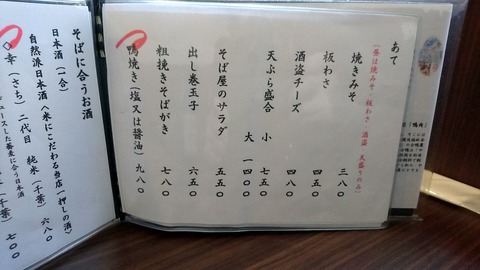 あて
(昼は焼みそ・板わさ・酒盗 天盛りのみ)
焼きみそ 三八〇
板わさ 四五〇
酒盗チーズ 四八〇
天ぷら盛合 小 七五〇
大 一四〇〇
そば屋のサラダ 五五〇
出し巻玉子 六五〇
粗挽きそばがき 七八〇
鴨焼き(塩又は醤油) 九八〇
そばに合うお酒
日本酒(一合)
自然派日本酒<米にこだわる当店一押しの酒>
◇幸(さち) 二代目 純米(千葉) 六八〇
した蕎麦に合う日本酒
(千葉) 七〇〇